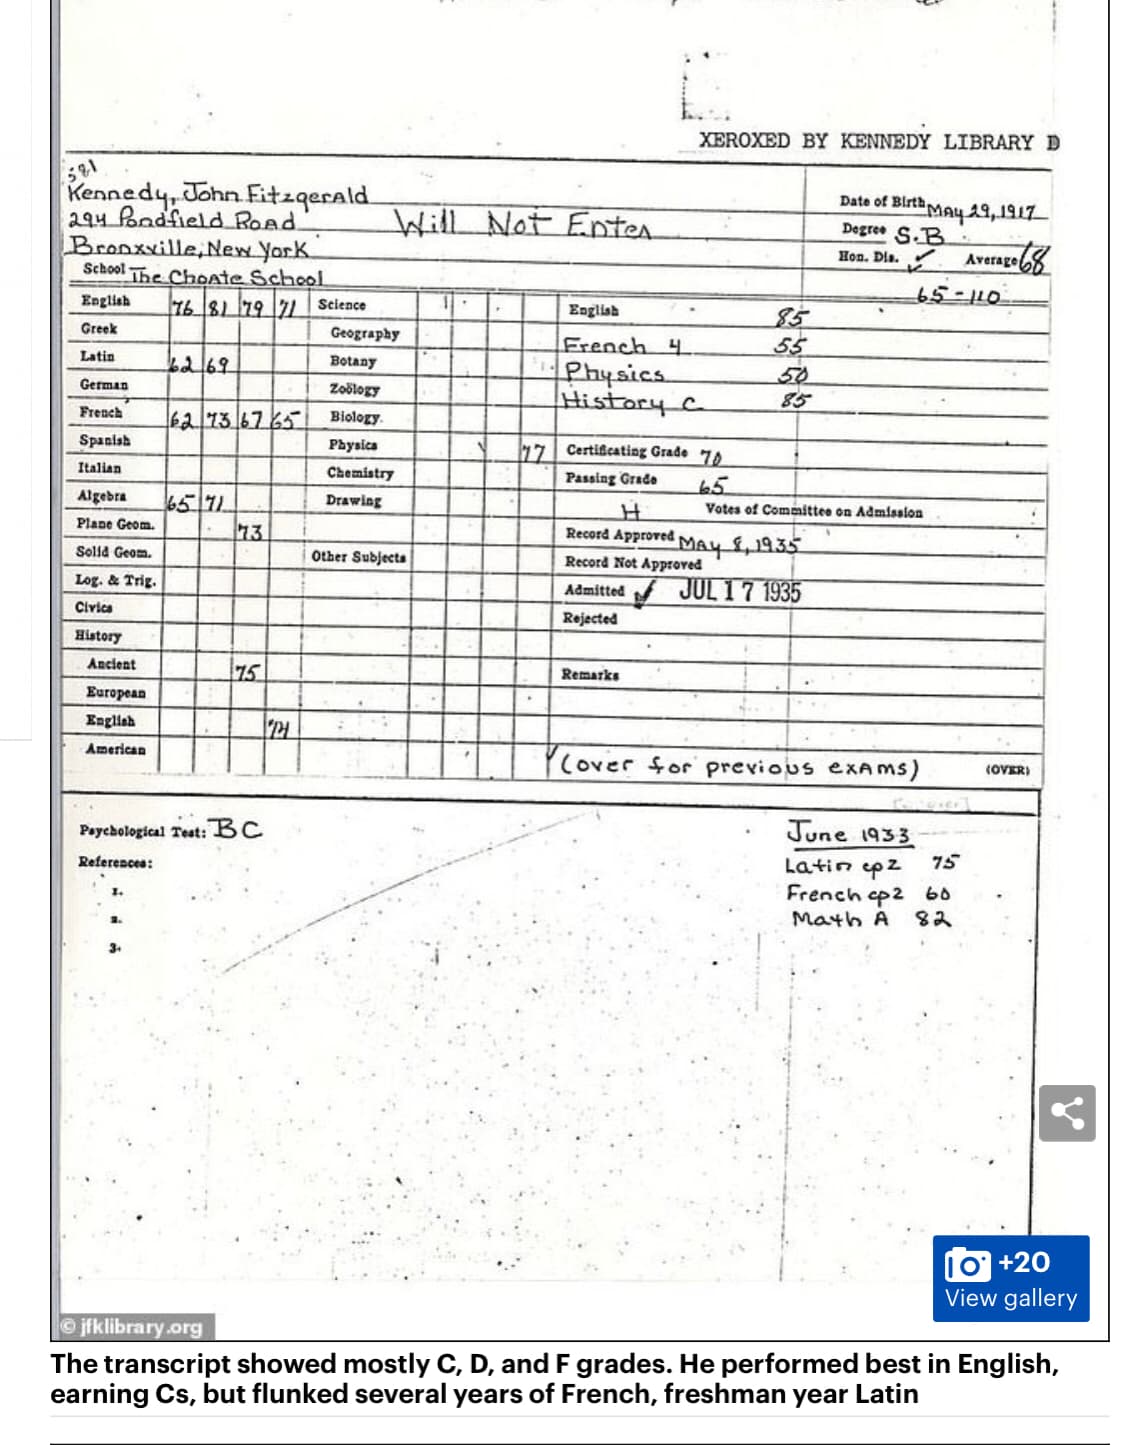 XEROXED BY KENNEDY LIBRARY D
581
Kennedy, John Fitzgerald
294 Pondfield Road
Bronxville, New York
Will Not Enter
Date of Birth May 29, 1917
Degree S.B.
Hon. Dis. ✓ Average 68
65-110
School The Choate School
English 76 81 79 71
Greek
Latin 62 69
German
French 62 73 67 65
Spanish
Italian
Algebra 65 71
Plane Geom. 73
Solid Geom.
Log. & Trig.
Civics
History
Ancient 75
European
English 74
American
Science
Geography
Botany
Zoölogy
Biology.
Physics 77
Chemistry
Drawing
Other Subjects
English 85
French 4 55
Physics 50
History C 85
Certificating Grade 70
Passing Grade 65
H Votes of Committee on Admission
Record Approved May 8, 1935
Record Not Approved
Admitted ✓ JUL 17 1935
Rejected
Remarks
(over for previous exams) (OVER)
Psychological Test: BC
References:
1.
2.
3.
June 1933
Latin cp2 75
French cp2 60
Math A 82
+20
View gallery
© jfklibrary.org
The transcript showed mostly C, D, and F grades. He performed best in English,
earning Cs, but flunked several years of French, freshman year Latin